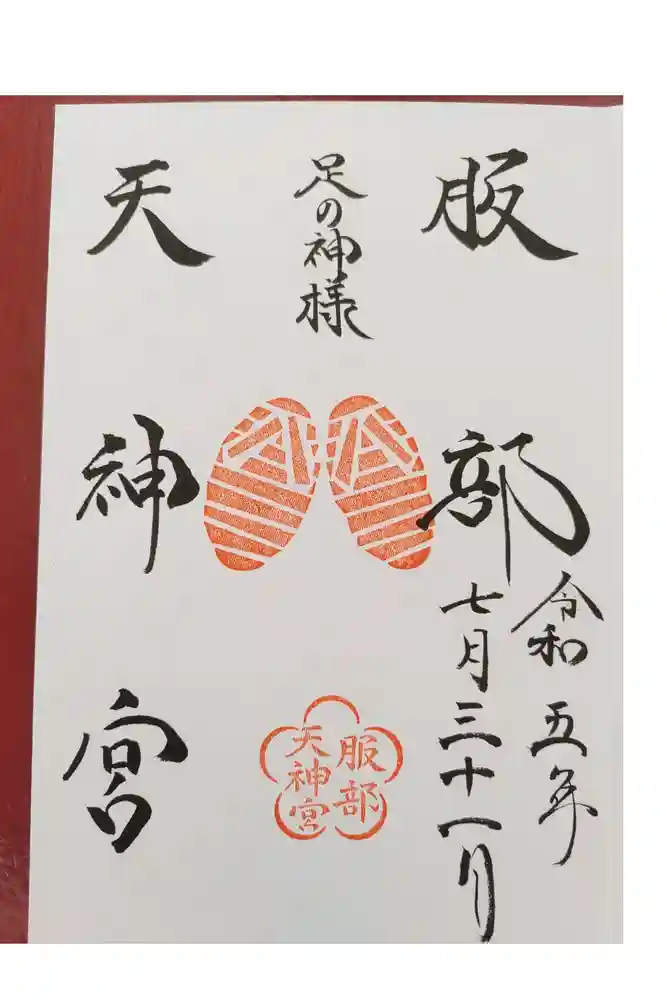 服部
令和五年
七月三十一日
足の神様
天神宮
服部
天神宮